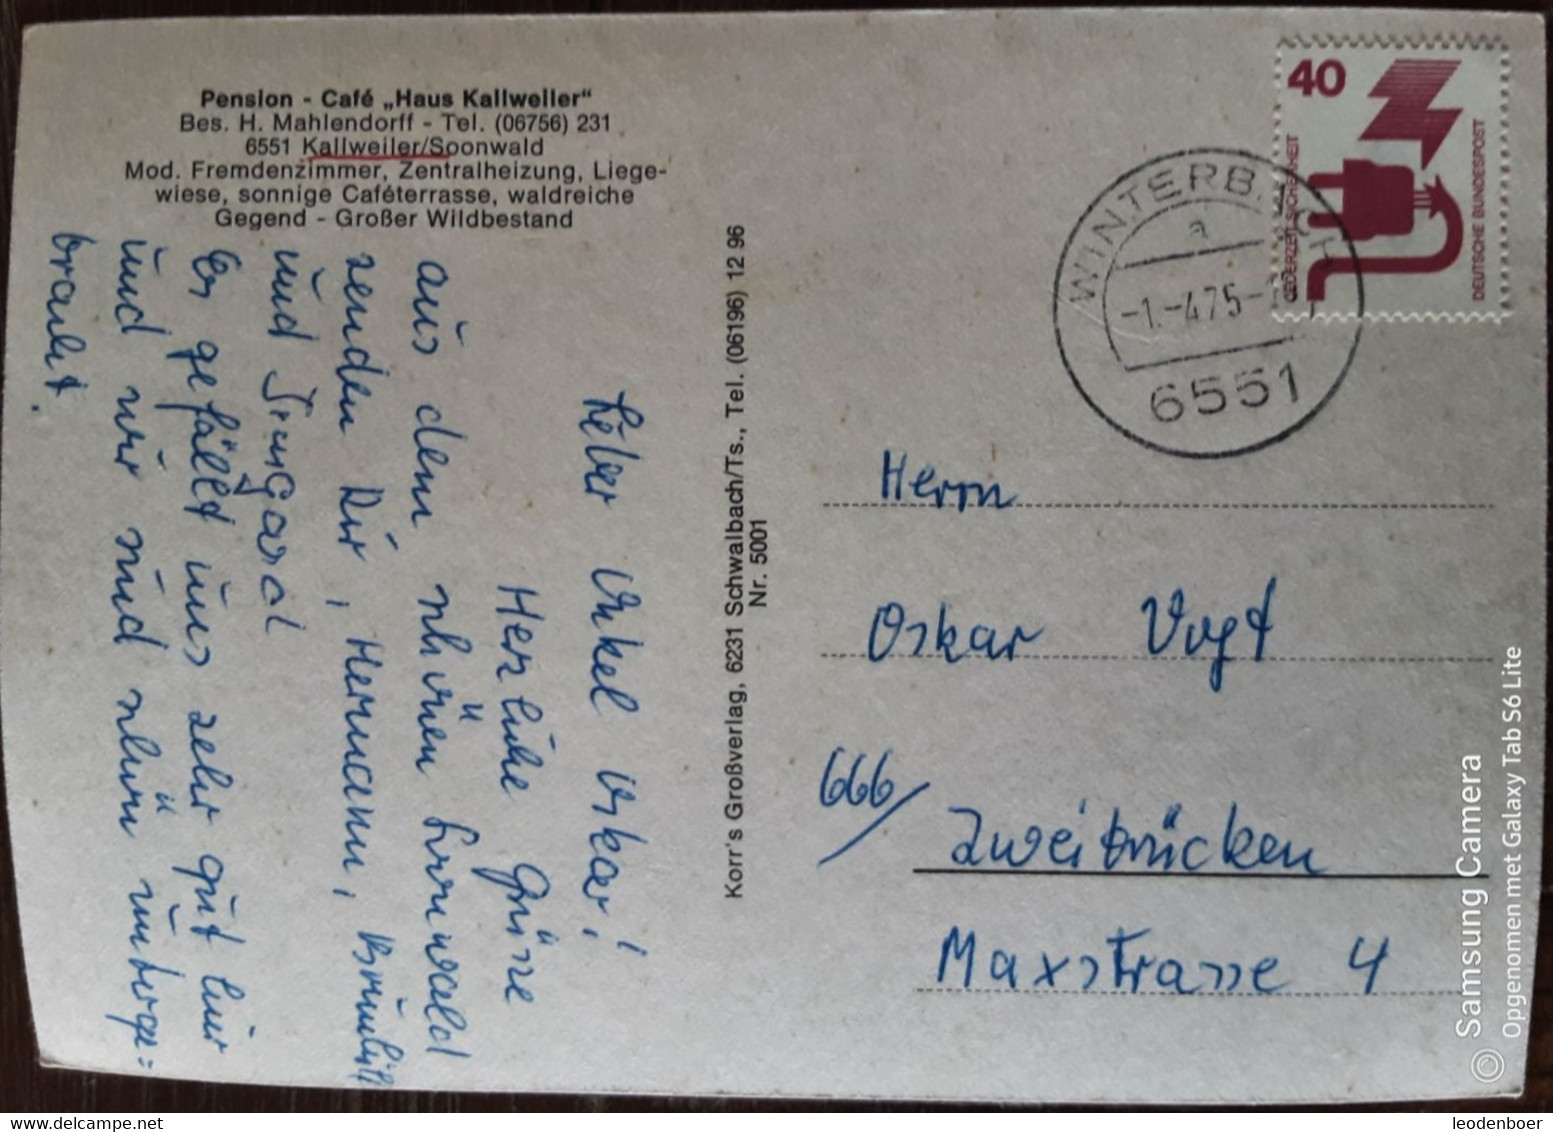 Pension - Café „Haus Kallweiler"
Bes. H. Mahlendorff - Tel. (06756) 231
6551 Kallweiler/Soonwald
Mod. Fremdenzimmer, Zentralheizung, Liege-
wiese, sonnige Caféterrasse, waldreiche
Gegend - Großer Wildbestand
Lieber Onkel Oskar!
Herzliche Grüsse
aus dem schönen Soonwald
senden Dir, Hermann,
und Irmgard
Es gefällt uns sehr gut hier
und wir sind schon
braucht.
Korr's Großverlag, 6231 Schwalbach/Ts., Tel. (06196) 12 96
Nr. 5001
40
JEDERZEIT SICHERHEIT
DEUTSCHE BUNDESPOST
WINTERB
a
-1.-4.75-
6551
Herrn
Oskar Vogt
666/
Zweibrücken
Maxstrasse 4
Samsung Camera
Opgenomen met Galaxy Tab S6 Lite
leodenboer